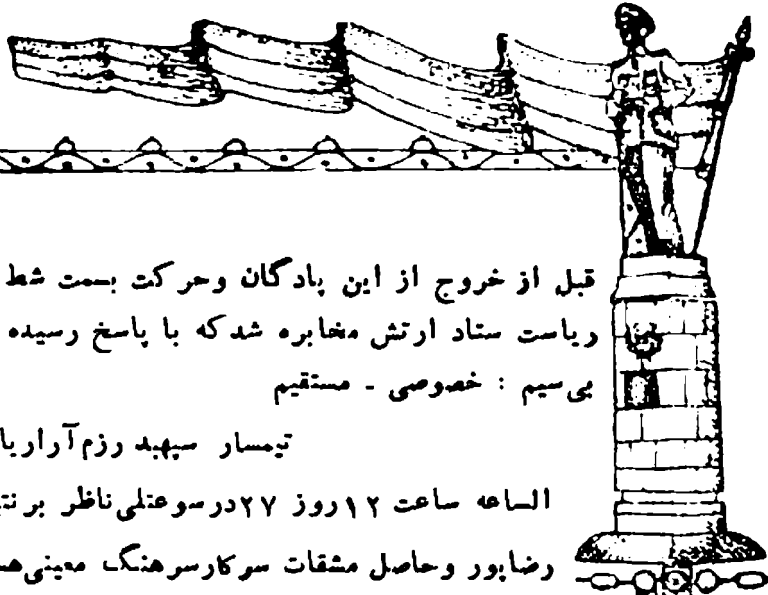 قبل از خروج از این پادگان وحرکت بسمت شط
ریاست ستاد ارتش مخابره شدکه با پاسخ رسیده
بی‌سیم : خصوصی - مستقیم
تیمسار سپهبد رزم‌آرا
الساعه ساعت ۱۲ روز ۲۷ در ناظر بر
رضاپور وحاصل مشقات سرکارسرهنگ معینی